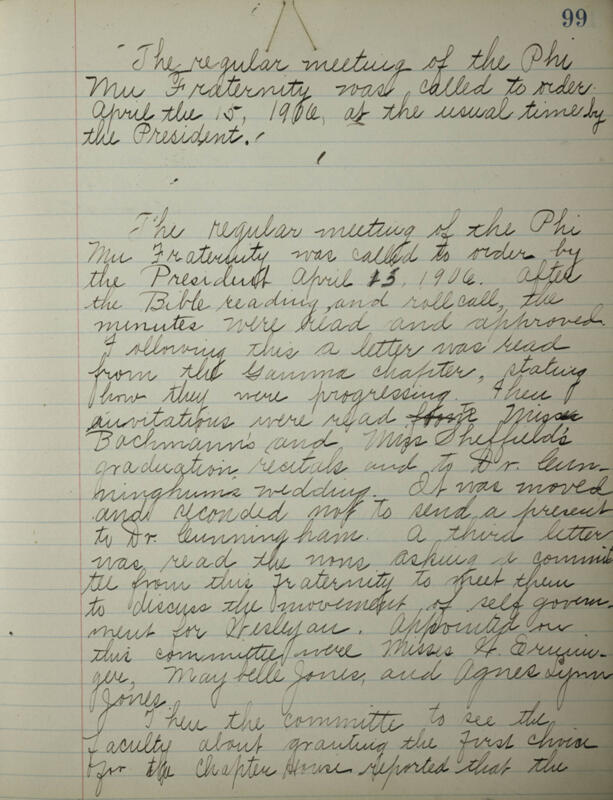 99
The regular meeting of the Phi
Mu Fraternity was called to order
April the 15, 1906, at the usual time by
the President.
The regular meeting of the Phi
Mu Fraternity was called to order by
the President April 15, 1906. After
the Bible reading, and roll call, the
minutes were read and approved.
Following this a letter was read
from the Gamma chapter, stating
how they were progressing. Then
invitations were read from Misses
Bachmann's and Miss Sheffield's
graduation recitals and to Dr. Cun-
ninghum's wedding. It was moved
and seconded not to send a present
to Dr. Cunningham. A third letter
was read the nons asking a commit
tee from this Fraternity to meet them
to discuss the movement of self govern-
ment for Wesleyan. Appointed on
this committee were Misses W.
Maybelle Jones, and Agnes Lynn
Jones.
Then the committe to see the
faculty about granting the first choice
for the Chapter House reported that the